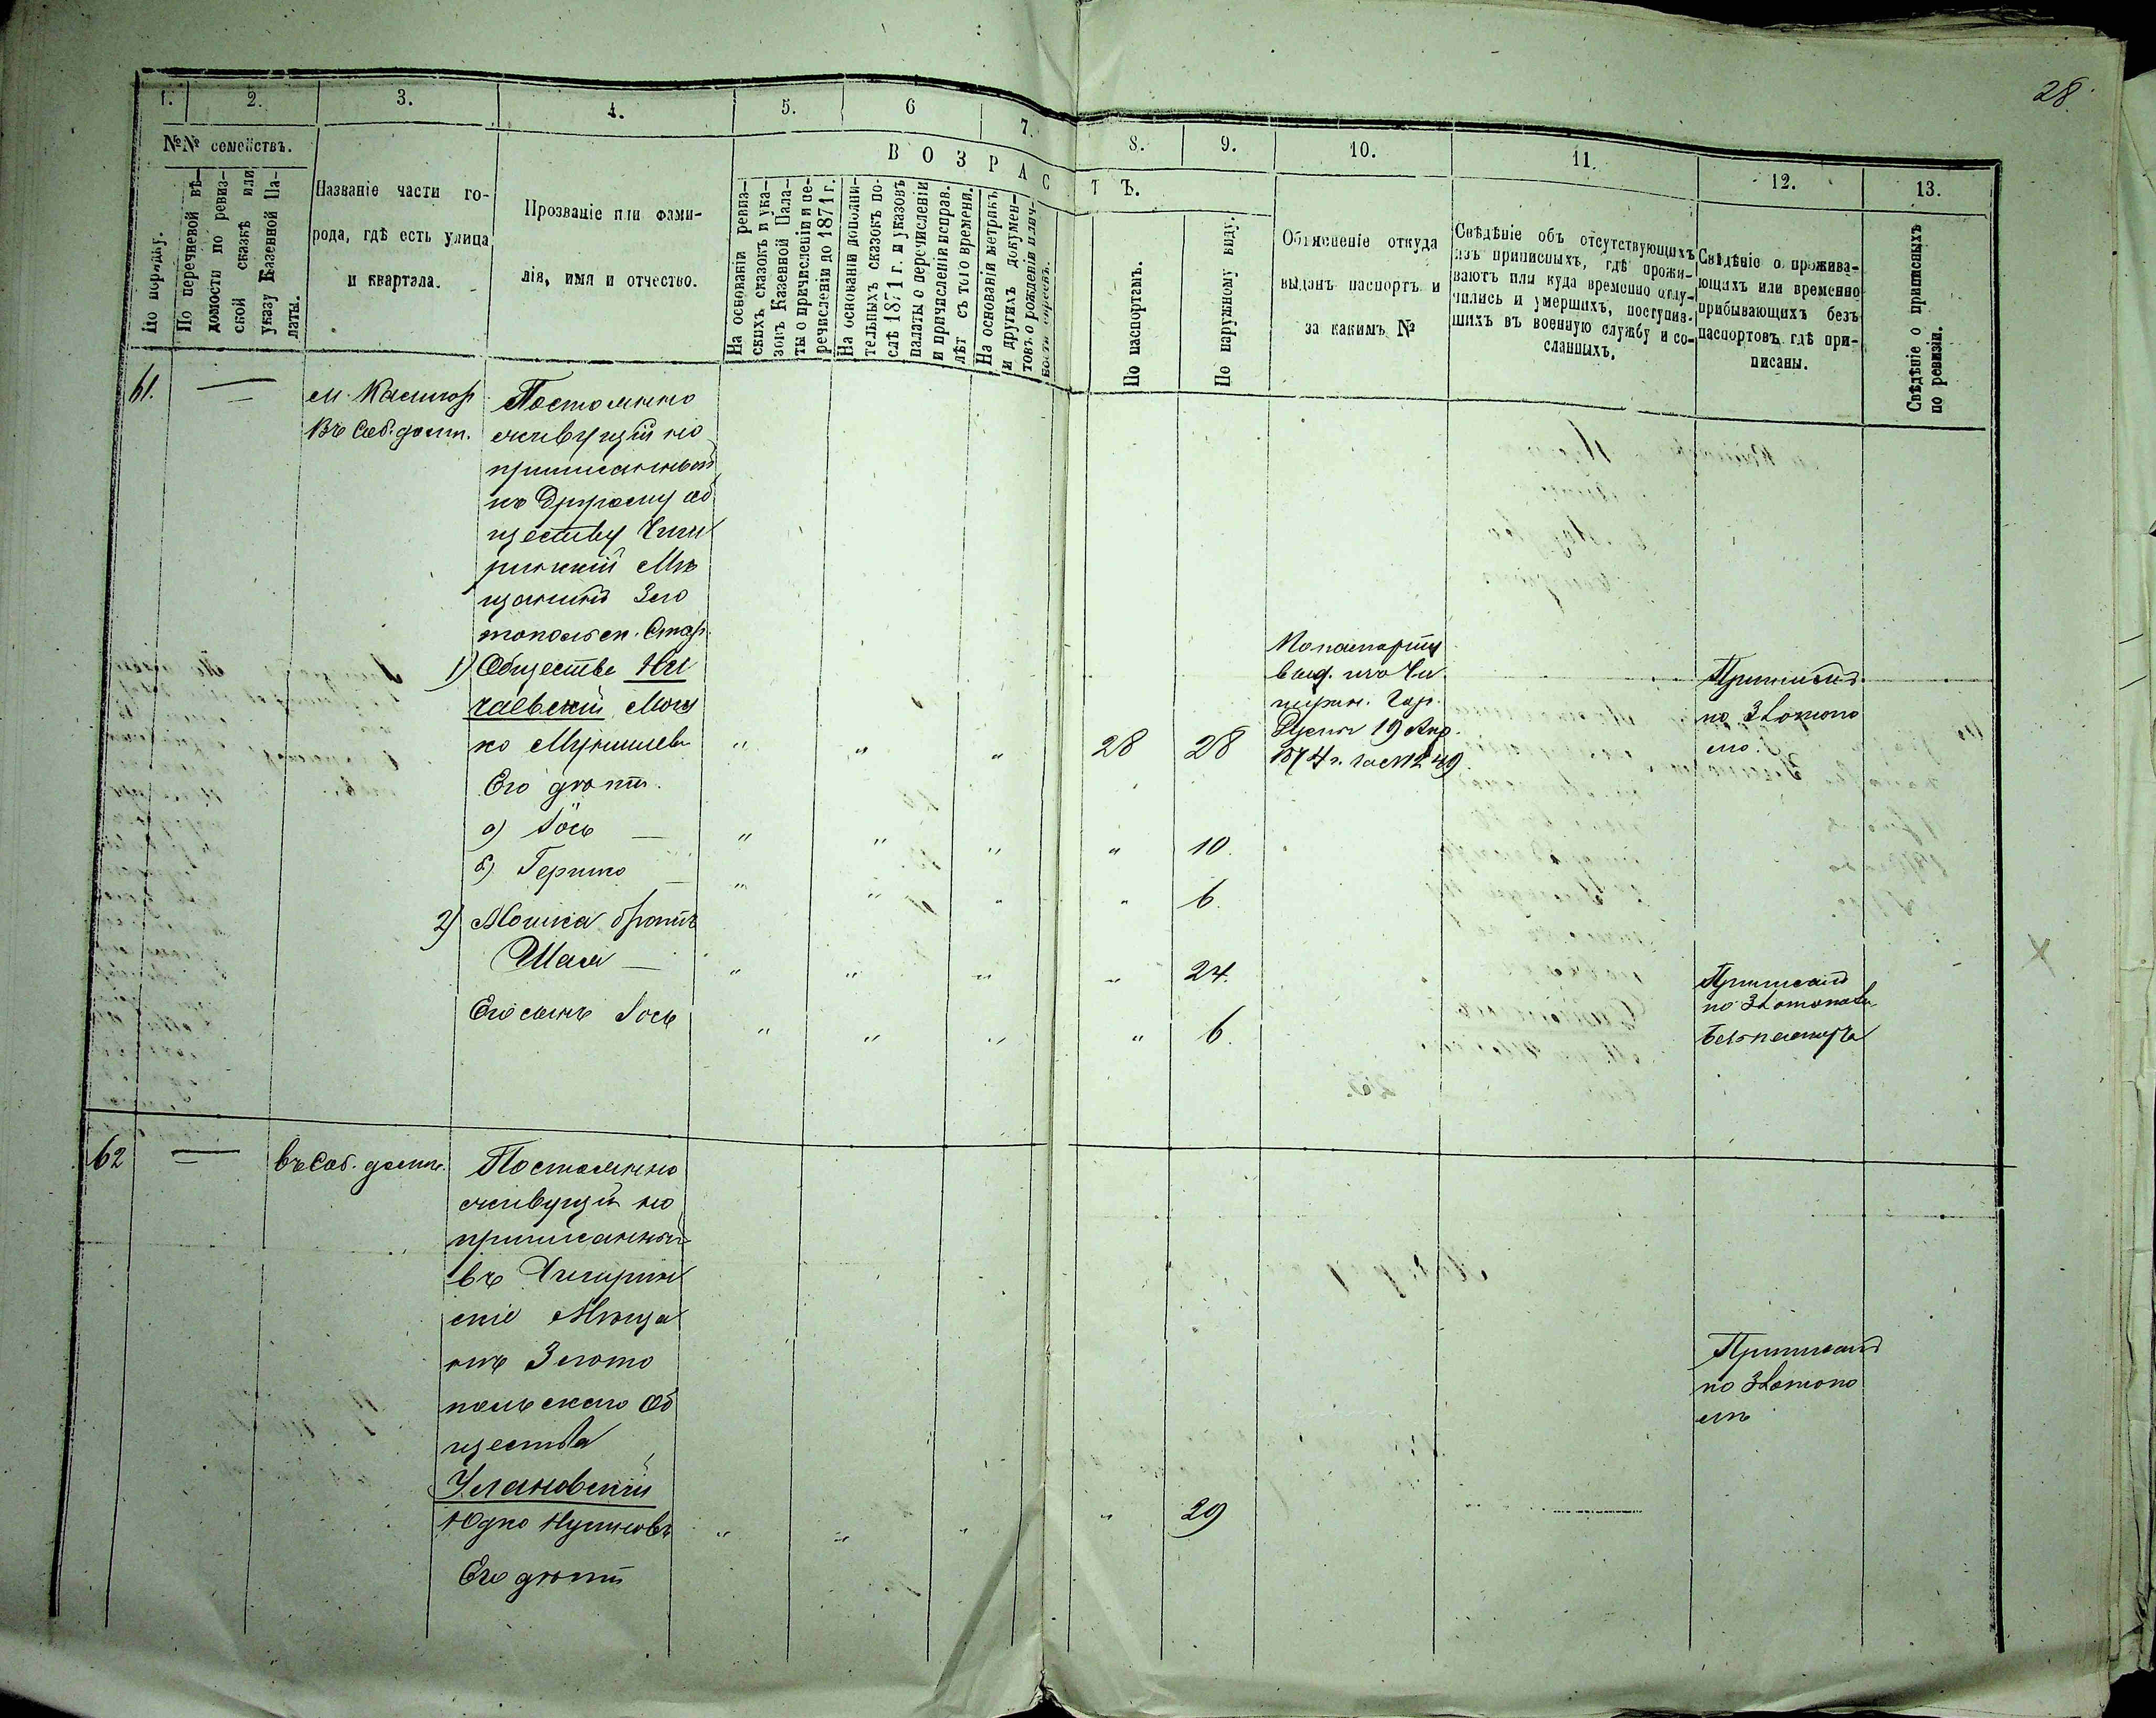 28.
1. 2. 3. 4. 5. 6 7. 8. 9. 10. 11. 12. 13.
№№ семействъ.
По порядку.
По перечневой вѣ-
домости по ревиз-
ской сказкѣ или
указу Казенной Па-
латы.
Названіе части го-
рода, гдѣ есть улица
и квартала.
Прозваніе или фами-
лія, имя и отчество.
ВОЗРАСТЪ.
На основаніи ревиз-
скихъ сказокъ и ука-
зовъ Казенной Пала-
ты о причисленіи и пе-
речисленіи до 1871 г.
На основаніи дополни-
тельныхъ сказокъ по-
слѣ 1871 г. и указовъ
палаты о перечисленіи
и причисленіи исправ.
лѣт съ того времени.
На основаніи метрикъ
и другихъ докумен-
товъ о рожденіи и лич-
По паспортамъ.
По наружному виду.
Объясненіе откуда
выданъ паспортъ и
за какимъ №
Свѣдѣніе объ отсутствующихъ
изъ приписныхъ, гдѣ прожи-
ваютъ или куда временно отлу-
чились и умершихъ, поступив-
шихъ въ военную службу и со-
сланныхъ.
Свѣдѣніе о прожива-
ющихъ или временно
прибывающихъ безъ
паспортовъ гдѣ при-
писаны.
Свѣдѣніе о приписныхъ
по ревизіи.
61. —
въ Соб. домѣ.
Постоянно
живущій но
приписанный
къ другому об
ществу Чиги
ринскій Мѣ
щанинъ Злo
топольск. Стар.
1) Общества
Мош
ко
28 28
19 Апр.
1874 г.
Приписанъ
по Златопо
лю.
Его дѣти.
а) Іось — 10.
б) Гершко — 6.
2) Мошка братъ
24.
Приписанъ
по Златополю
безъ паспорта
Его сынъ Іось 6.
62 — въ Соб. домѣ.
Постоянно
живущій но
приписанный
въ Чигирин
скіе Мѣща
нѣ Злато
польскаго Об
щества
Улановскій
Юдко 29
Приписанъ
по Златопо
лѣ
Его дѣти